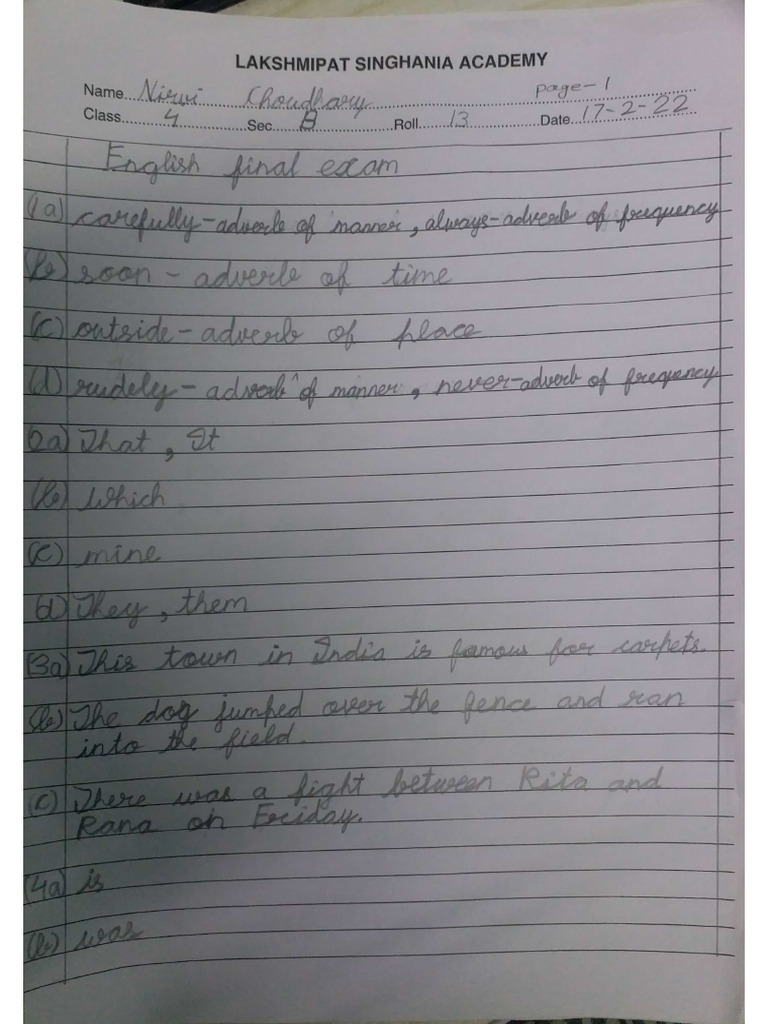 LAKSHMIPAT SINGHANIA ACADEMY
page-1
Name Nirvi Choudhary
Class 4 Sec B Roll 13 Date 17-2-22
English final exam
(1a) carefully-adverb of manner, always-adverb of frequency
(b) soon - adverb of time
(c) outside-adverb of place
(d) rudely - adverb of manner, never-adverb of frequency
(2a) That, It
(b) which
(c) mine
(d) They, them
(3a) This town in India is famous for carpets.
(b) The dog jumped over the fence and ran
into the field.
(c) There was a fight between Rita and
Rana on Friday.
(4a) is
(b) was